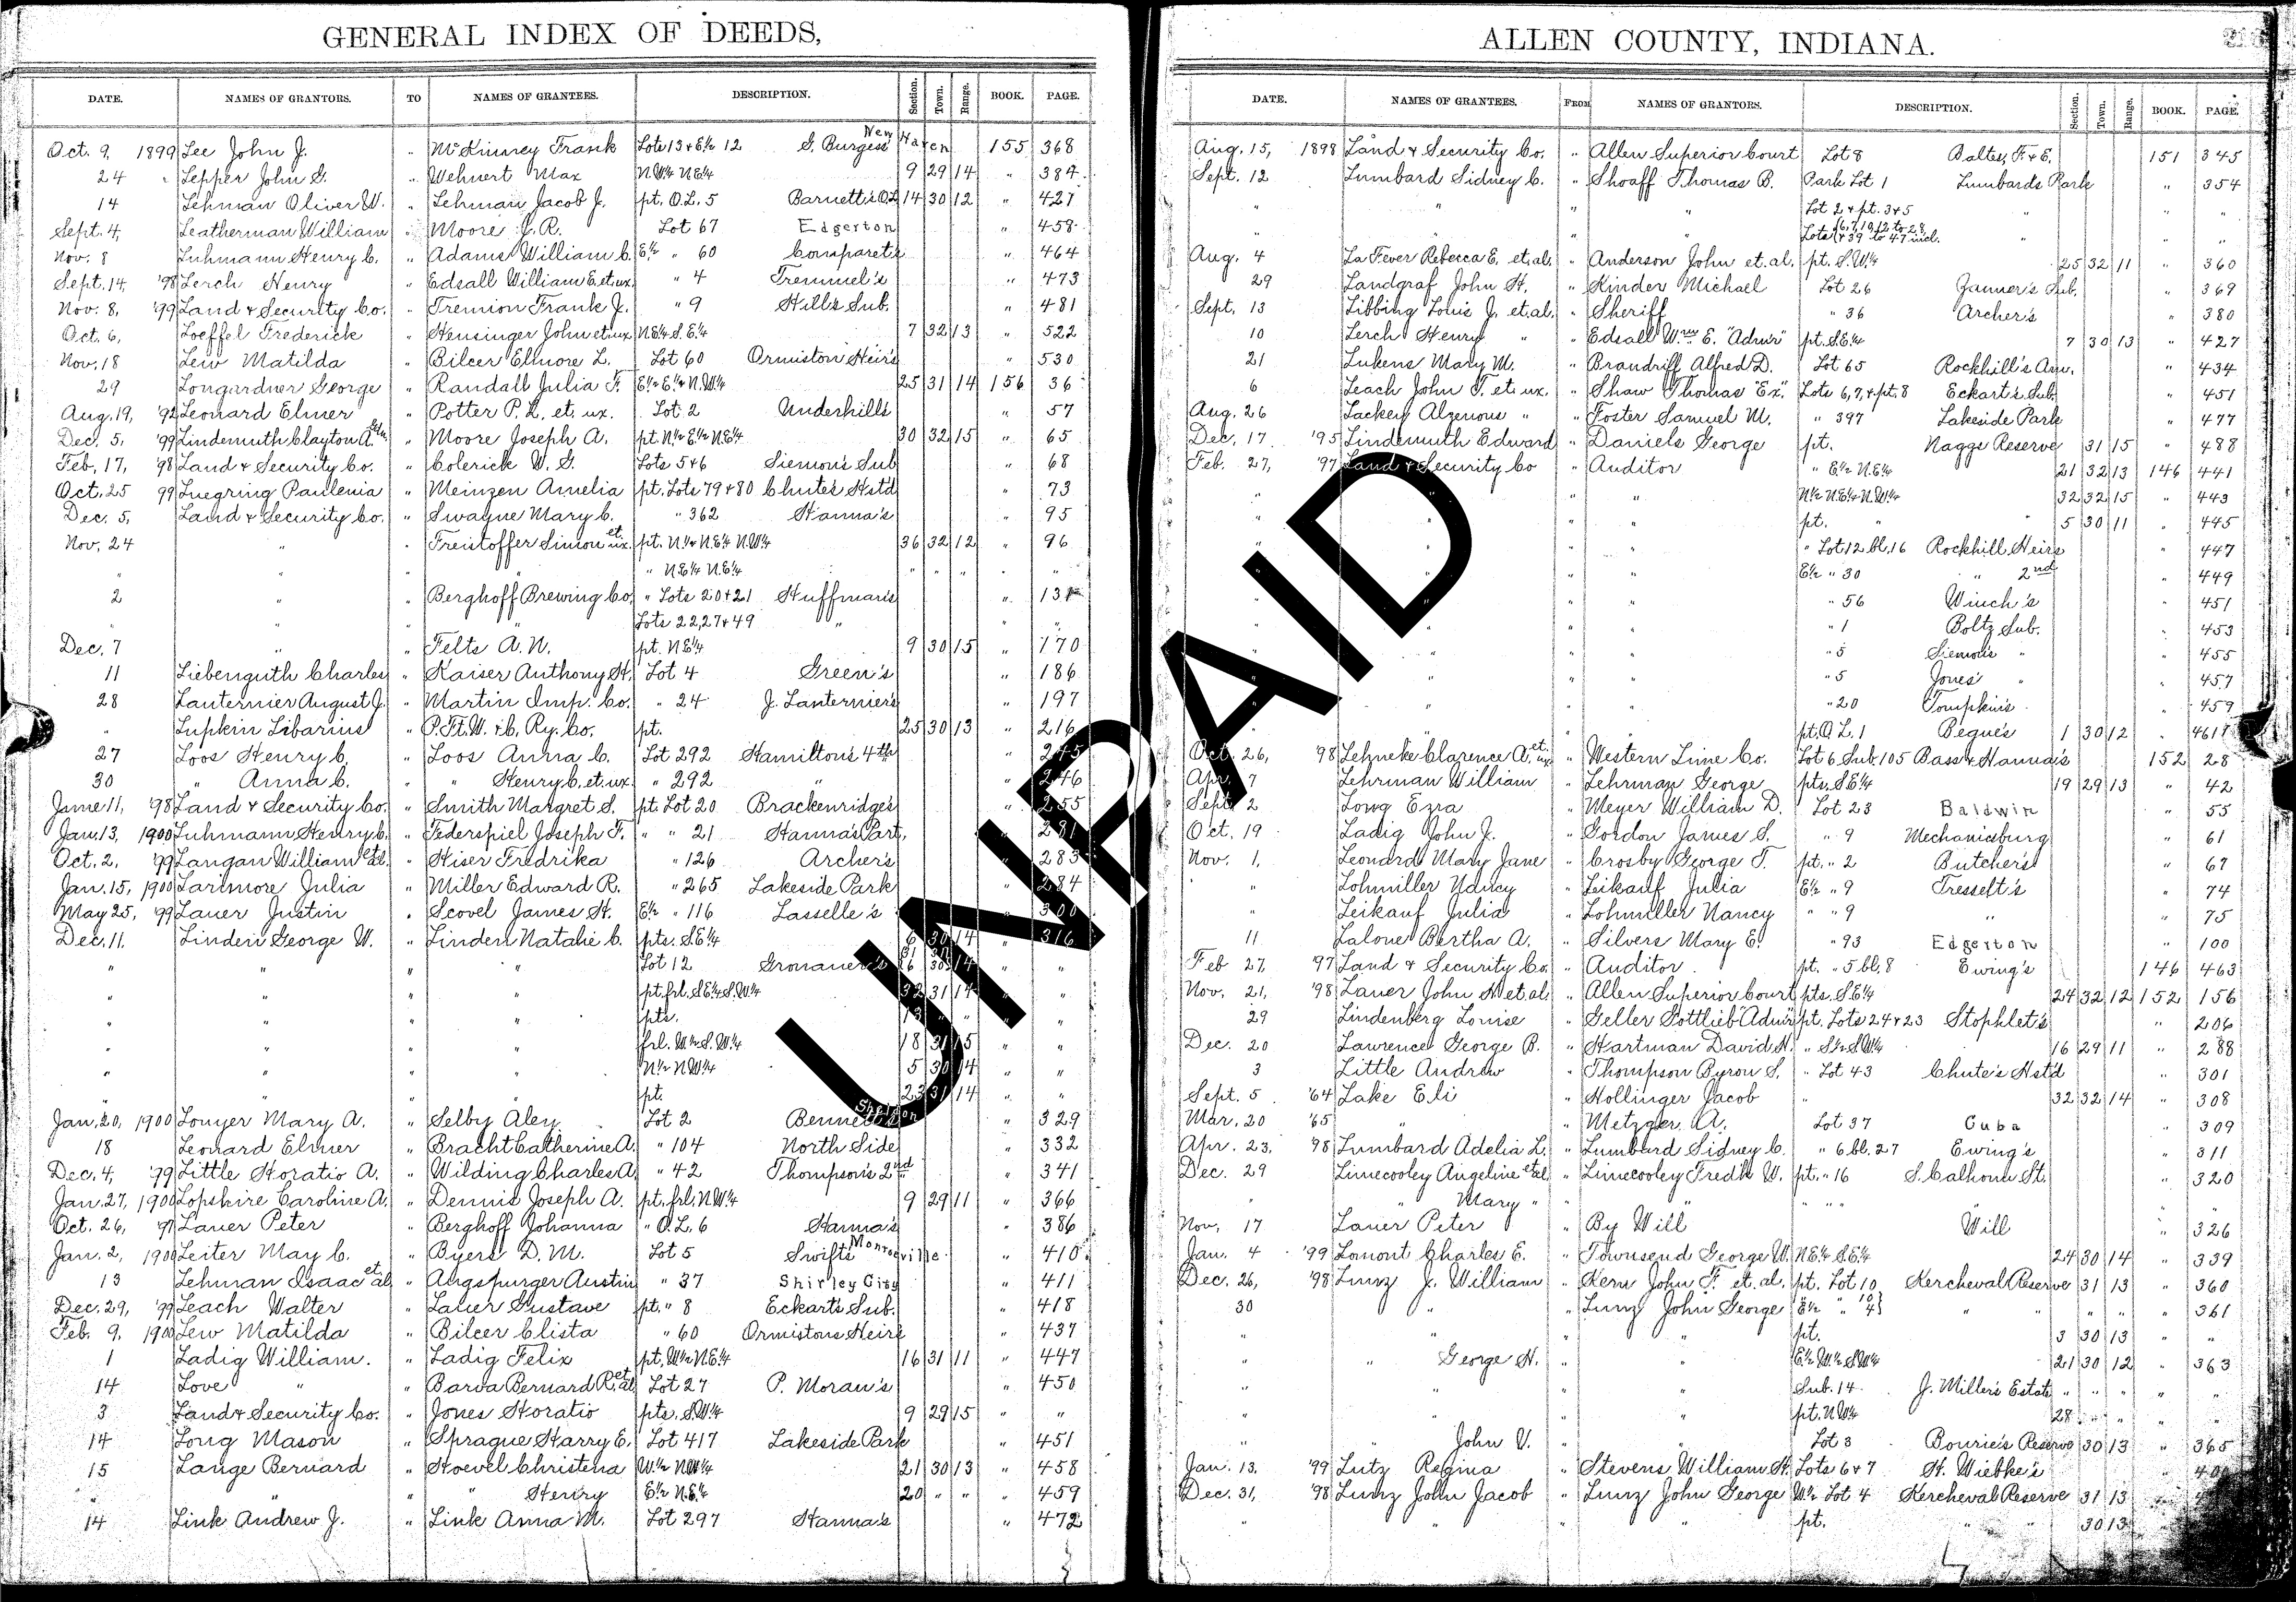 GENERAL INDEX OF DEEDS,
DATE. NAMES OF GRANTORS. TO NAMES OF GRANTEES. DESCRIPTION. Section. Town. Range. BOOK. PAGE.
Oct. 9, 1899 Lee John J. " McKinney Frank Lots 13 & E½ 12 S. Burgess New Haven 155 368
24 " Lepper John G. " Wehnert Max N.W¼ N.E¼ 9 29 14 " 384
14 Lehman Oliver W. " Lehman Jacob J. pt. O.L. 5 Barnett's O.L. 14 30 12 " 427
Sept. 4, Leatherman William " Moore J. R. Lot 67 Edgerton " 458
Nov. 8 Luhmann Henry C. " Adams William C. E½ " 60 Comparet's " 464
Sept. 14, '98 Lerch Henry " Edsall William E. et ux. " 4 Tremmel's " 473
Nov. 8, '99 Land & Security Co. " Tremion Frank J. " 9 Hill's Sub. " 481
Oct. 6, Loeffel Frederick " Heninger John et ux N.E¼ S.E¼ 7 32 13 " 522
Nov. 18 Lew Matilda " Bilcer Elmore L. Lot 60 Ormiston Heirs " 530
29 Longardner George " Randall Julia F. E½ E½ N.W¼ 25 31 14 156 36
Aug. 19, '92 Leonard Elmer " Potter P. L. et. ux. Lot 2 Underhill's " 57
Dec. 5, '99 Lindemuth Clayton A. et ux. " Moore Joseph A. pt. N½ E½ N.E¼ 30 32 15 " 65
Feb. 17, '98 Land & Security Co. " Colerick W. G. Lots 5 & 6 Siemon's Sub " 68
Oct. 25 99 Luegring Paulenia " Meinzen Amelia pt. Lots 79 & 80 Chute's Hstd " 73
Dec. 5, Land & Security Co. " Swayne Mary C. " 362 Hanna's " 95
Nov. 24 " " Freistoffer Simon et ux. pt. N.½ N.E¼ N.W¼ 36 32 12 " 96
" " " " N.E¼ N.E¼ " " " " "
2 " " Berghoff Brewing Co. " Lots 20 & 21 Huffman's " 131
" " " " Lots 22, 27 & 49 " " "
Dec. 7 " " Felts A. N. pt. N.E¼ 9 30 15 " 170
11 Liebenguth Charles " Kaiser Anthony H. Lot 4 Green's " 186
28 Lanternier August J. " Martin Imp. Co. " 24 J. Lanternier's " 197
" Lupkin Libarius " P. Ft. W. & C. Ry. Co. pt. 25 30 13 " 216
27 Loos Henry C. " Loos Anna C. Lot 292 Hamilton's 4th " 245
30 " Anna C. " " Henry C. et ux " 292 " " 246
June 11, '98 Land & Security Co. " Smith Margret S. pt. Lot 20 Brackenridges " 255
Jan. 13, 1900 Luhmann Henry C. " Federspiel Joseph F. " " 21 Hanna's Part, " 281
Oct. 2, '99 Langan William et al. " Hiser Fredrika " 126 Archer's " 283
Jan. 15, 1900 Larimore Julia " Miller Edward R. " 265 Lakeside Park " 284
May 25, '99 Lauer Justin " Scovel James H. E½ " 116 Lasselle's " 300
Dec. 11. Linden George W. " Linden Natalie C. pts. S.E¼ 6 30 14 " 316
" " " " Lot 12 Gronauer's " "
" " " " pt. frl. S.E¼ S.W¼ 32 31 14 " "
" " " " pts. " "
" " " " frl. W½ S.W¼ 18 31 15 " "
" " " " N½ N.W¼ 5 30 14 " "
" " " " pt. 23 31 14 " "
Jan. 20, 1900 Louyer Mary A. " Selby Aley Lot 2 Bennett's " 329
18 Leonard Elmer " Bracht Catherine A. " 104 North Side " 332
Dec. 4, '79 Little Horatio A. " Wilding Charles A. " 42 Thompson's 2nd " 341
Jan. 27, 1900 Lopshire Caroline A. " Dennis Joseph A. pt. frl. N.W¼ 9 29 11 " 366
Oct. 26, '97 Lauer Peter " Berghoff Johanna " O.L. 6 Hanna's " 386
Jan. 2, 1900 Leiter May C. " Byers D. M. Lot 5 Swifts Monroeville " 410
13 Lehman Isaac et al " Augspurger Austin " 37 Shirley City " 411
Dec. 29, '99 Leach Walter " Lauer Gustave pt. " 8 Eckart's Sub. " 418
Feb. 9, 1900 Lew Matilda " Bilcer Clista " 60 Ormistons Heirs " 437
1 Ladig William. " Ladig Felix pt. W½ N.E¼ 16 31 11 " 447
14 Love " " Barva Bernard R. et al Lot 27 P. Moran's " 450
3 Land & Security Co. " Jones Horatio pts. S.W¼ 9 29 15 " "
14 Long Mason " Sprague Harry E. Lot 417 Lakeside Park " 451
15 Lange Bernard " Hoevel Christena W.½ N.W¼ 21 30 13 " 458
" " " " Henry E½ N.E¼ 20 " " " 459
14 Link Andrew J. " Link Anna M. Lot 297 Hanna's " 472
ALLEN COUNTY, INDIANA.
DATE. NAMES OF GRANTEES. FROM NAMES OF GRANTORS. DESCRIPTION. Section. Town. Range. BOOK. PAGE.
Aug. 15, 1898 Land & Security Co. " Allen Superior Court Lot 8 Baltes, F. & E. 151 345
Sept. 12 Lumbard Sidney C. " Shoaff Thomas B. Park Lot 1 Lumbards Park " 354
" " " " Lot 2 & pt. 3 & 5 " " "
Lots 6, 7, 10, 12 to 28 & 39 to 47 incl. " " "
Aug. 4 La Fever Rebecca E. et. al. " Anderson John et. al. pt. S.W¼ 25 32 11 " 360
29 Landgraf John H. " Kinder Michael Lot 26 Janner's Sub. " 369
Sept. 13 Libbing Louis J. et. al. " Sheriff " 36 Archer's " 380
10 Lerch Henry " " Edsall Wm E. "Admr" pt. S.E¼ 7 30 13 " 427
21 Lukens Mary M. " Brandriff Alfred D. Lot 65 Rockhill's Am. " 434
6 Leach John F. et. ux. " Shaw Thomas "Ex." Lots 6, 7, & pt. 8 Eckart's Sub. " 451
Aug. 26 Lackey Algenow " " Foster Samuel M. " 397 Lakeside Park " 477
Dec. 17 '95 Lindemuth Edward " Daniels George pt. Nagge Reserve 31 15 " 488
Feb. 27, '97 Land & Security Co " Auditor " E½ N.E¼ 21 32 13 146 441
" " " " N½ N.E¼ N.W¼ 32 32 15 " 443
" " " " pt. " 5 30 11 " 445
" " " " " Lot 12 bl. 16 Rockhill Heirs " 447
" " " " E½ " 30 " 2nd " 449
" " " " " 56 Winch's " 451
" " " " " 1 Boltz Sub. " 453
" " " " " 5 Siemon's " " 455
" " " " " 5 Jones' " " 457
" " " " " 20 Tompkin's " 459
" " " " pt. O.L. 1 Pequ's 1 30 12 " 461
Oct. 26, 98 Lehneke Clarence A. et ux " Western Lime Co. Lot 6 Sub. 105 Bass & Hanna's 152 28
Apr. 7 Lehrman William " Lehrman George pts. S.E¼ 19 29 13 " 42
Sept. 2 Long Ezra " Meyer William D. Lot 23 Baldwin " 55
Oct. 19 Ladig John J. " Gordon James S. " 9 Mechanicsburg " 61
Nov. 1, Leonard Mary Jane " Crosby George T. pt. " 2 Butcher's " 67
" Lohmiller Nancy " Leikauf Julia E½ " 9 Tresselt's " 74
" Leikauf Julia " Lohmiller Nancy " " 9 " " 75
11 Lalone Bertha A. " Silvers Mary E. " 93 Edgerton " 100
Feb 27, 97 Land & Security Co. " Auditor pt. " 5 bl. 8 Ewing's 146 463
Nov. 21, '98 Lauer John H et. al. " Allen Superior Court pts. S.E¼ 24 32 12 152 156
29 Lindenberg Louise " Geller Gottlieb "Admr" pt. Lots 24 & 23 Stophlet's " 206
Dec. 20 Lawrence George B. " Hartman David H. " S½ S.W¼ 16 29 11 " 288
3 Little Andrew " Thompson Byron S. " Lot 43 Chute's Hst'd " 301
Sept. 5 '64 Lake Eli " Hollinger Jacob " 32 32 14 " 308
Mar. 20 '65 " " Metzger A. Lot 37 Cuba " 309
Apr. 23, '98 Lumbard Adelia L. " Lumbard Sidney C. " 6 bl. 27 Ewing's " 311
Dec. 29 Limecooley Angeline et al " Limecooley Fredk W. pt. " 16 S. Calhoun St. " 320
" " Mary " " " " " "
Nov. 17 Lauer Peter " By Will Will " 326
Jan. 4 '99 Lomont Charles E. " Townsend George W. N.E¼ S.E¼ 24 30 14 " 339
Dec. 26, '98 Lunz J. William " Kern John F. et. al. pt. Lot 10 Kercheval Reserve 31 13 " 360
30 " " Lunz John George E½ " 10 } 4 } " " " " 361
" " " " pt. 3 30 13 " "
" " George H. " " E½ W½ S.W¼ 21 30 12 " 363
" " " " Sub. 14 J. Miller's Estate " " " " "
" " " " pt. N.W¼ 28 " " " "
" " John V. " " Lot 3 Bourie's Reserve 30 13 " 365
Jan. 13, '99 Lutz Regina " Stevens William H. Lots 6 & 7 H. Wiebke's "
Dec. 31, '98 Lunz John Jacob " Lunz John George W½ Lot 4 Kercheval Reserve 31 13
" " " " pt. " 30 13
UNPAID